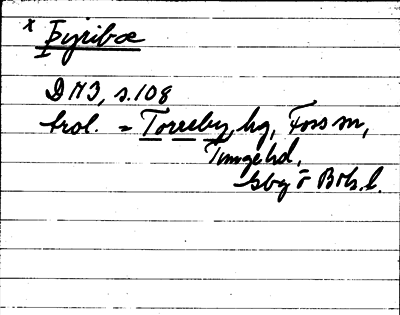 x Þyribœ
DN3, s.108
trol. = Torreby, hg, Foss sn,
Tunge hd,
Gbg o Boh. l.